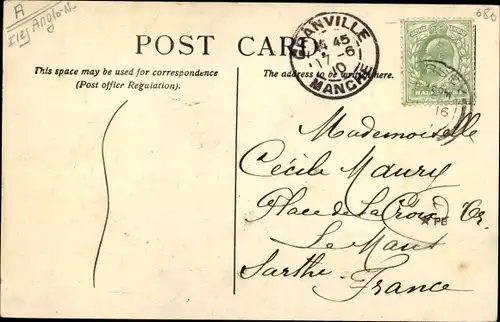 A
Iles Anglo-N.
686
POST CARD
GRANVILLE
45
17-6
10
MANCHE
This space may be used for correspondence
(Post office Regulation).
The address to be written here.
16
Mademoiselle
Cécile Maury
Place de la Croix
Le Mans
Sarthe. France